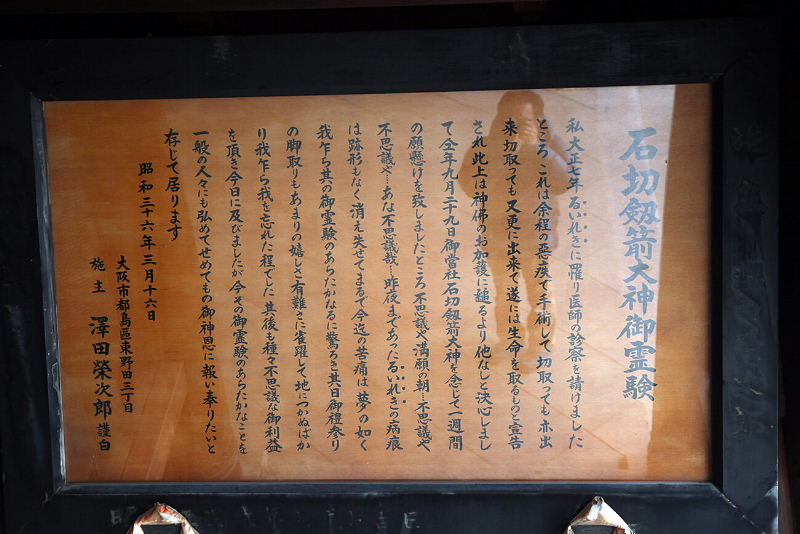 石切劔箭大神御霊験
私大正七年るいれきに罹り医師の診察を請けました
ところ、これは余程の悪疾で手術して切取っても亦出
来、切取っても又更に出来て遂には生命を取るものと宣告
され此上は神佛のお加護に縋るより他なしと決心しまし
て仝年九月二十九日御當社石切劔箭大神を念じて一週間
の願懸けを致しましたところ不思議や満願の朝…不思議や
不思議や…あな不思議哉…昨夜まであったるいれきの病痕
は跡形もなく消え失せてまるで今迄の苦痛は夢の如く
我乍ら其の御霊験のあらたかなるに驚ろき其日御禮参り
の脚取りもあまりの嬉しさ有難さに雀躍して地につかぬばか
り我乍ら我を忘れた程でした其後も種々不思議な御利益
を頂き今日に及びましたが今その御霊験のあらたかなことを
一般の人々にも弘めてせめてもの御神恩に報い奉りたいと
存じて居ります
昭和三十六年三月十六日
大阪市都島區東野田三丁目
施主 澤田榮次郎 謹白